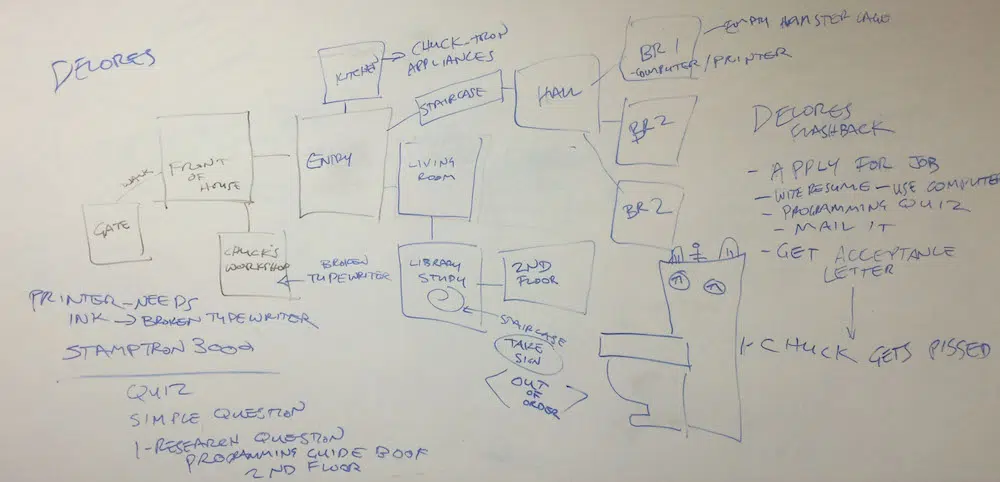 DELORES
KITCHEN
CHUCK-TRON
APPLIANCES
STAIRCASE
HALL
BR 1
-COMPUTER/PRINTER
EMPTY HAMSTER CAGE
BR2
BR2
FRONT
OF
HOUSE
WALK
GATE
ENTRY
LIVING
ROOM
CHUCK'S
WORKSHOP
BROKEN
TYPEWRITER
LIBRARY
STUDY
2ND
FLOOR
STAIRCASE
TAKE
SIGN
OUT
OF
ORDER
PRINTER-NEEDS
INK → BROKEN TYPEWRITER
STAMPTRON 3000
QUIZ
SIMPLE QUESTION
1-RESEARCH QUESTION
PROGRAMMING GUIDE BOOF
2ND FLOOR
DELORES
FLASHBACK
- APPLY FOR JOB
- WITE RESUME - USE COMPUTER
- PROGRAMMING QUIZ
- MAIL IT
- GET ACCEPTANCE
LETTER
1-CHUCK GETS PISSED